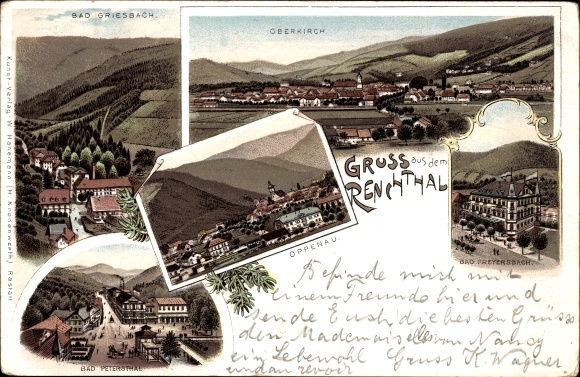 BAD GRIESBACH.
OBERKIRCH.
GRUSS aus dem
RENCHTHAL
OPPENAU.
BAD FREYERSBACH.
BAD PETERSTHAL.
Kunst-Verlag W. Hanemann (H. Kronenwerth) Rastatt.
Befinde mich mit
einem Freunde hier und
sende Euch die besten Grüs
den Mademaiselles von Nancy
ein Lebewohl Gruss K. Wagner
und au revoir